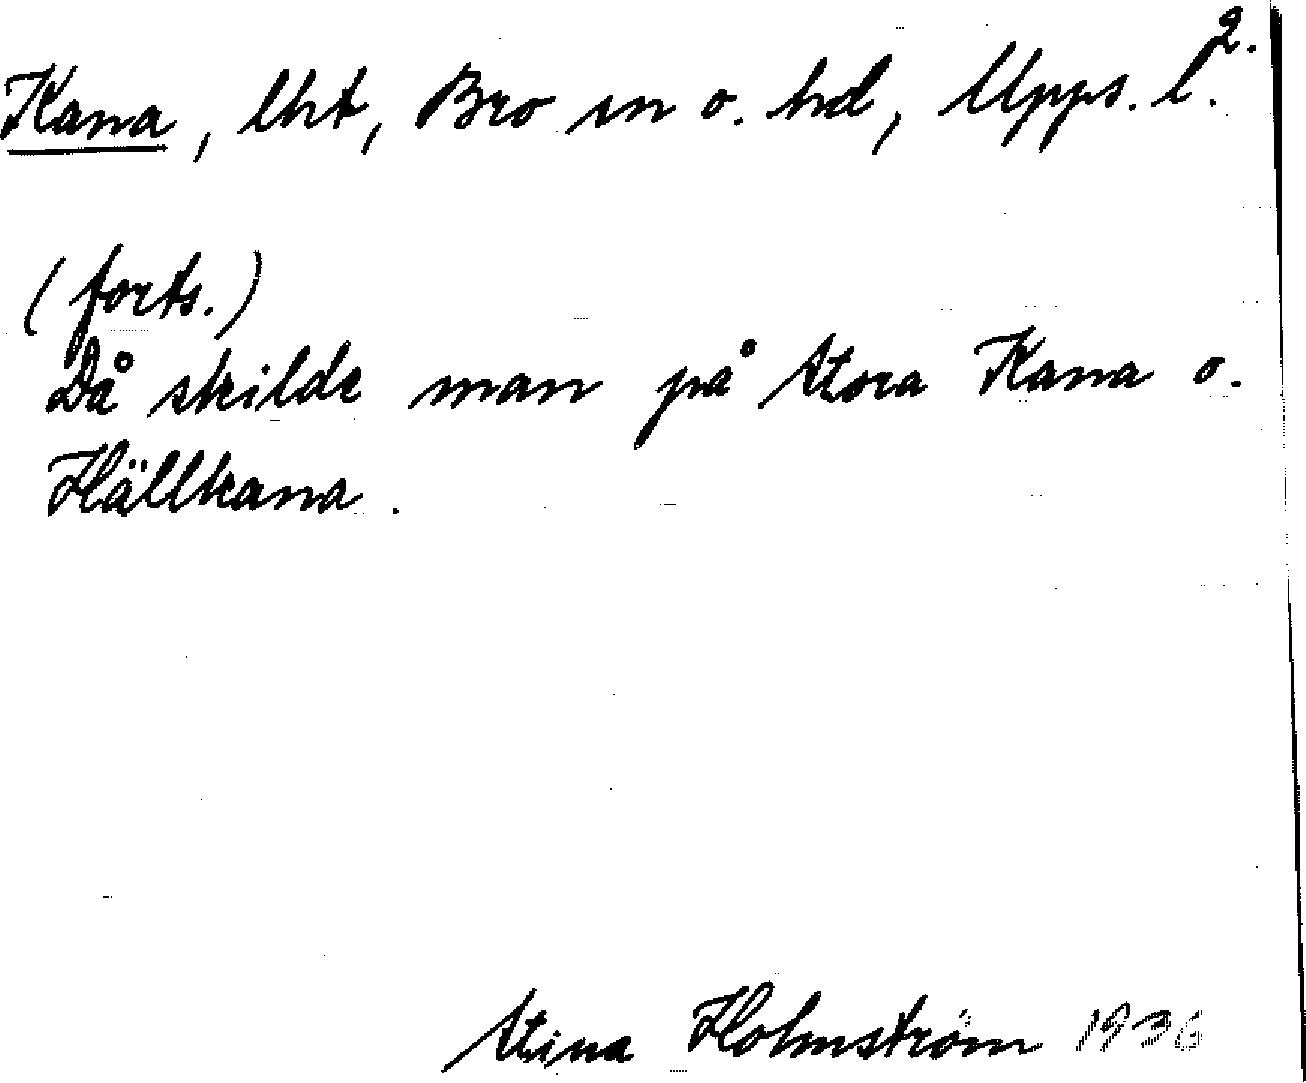 2.
Kana, lht, Bro sn o. hd, Upps. l.
(forts.)
Då skilde man på Stora Kana o.
Hällkana.
Stina Holmström 1936